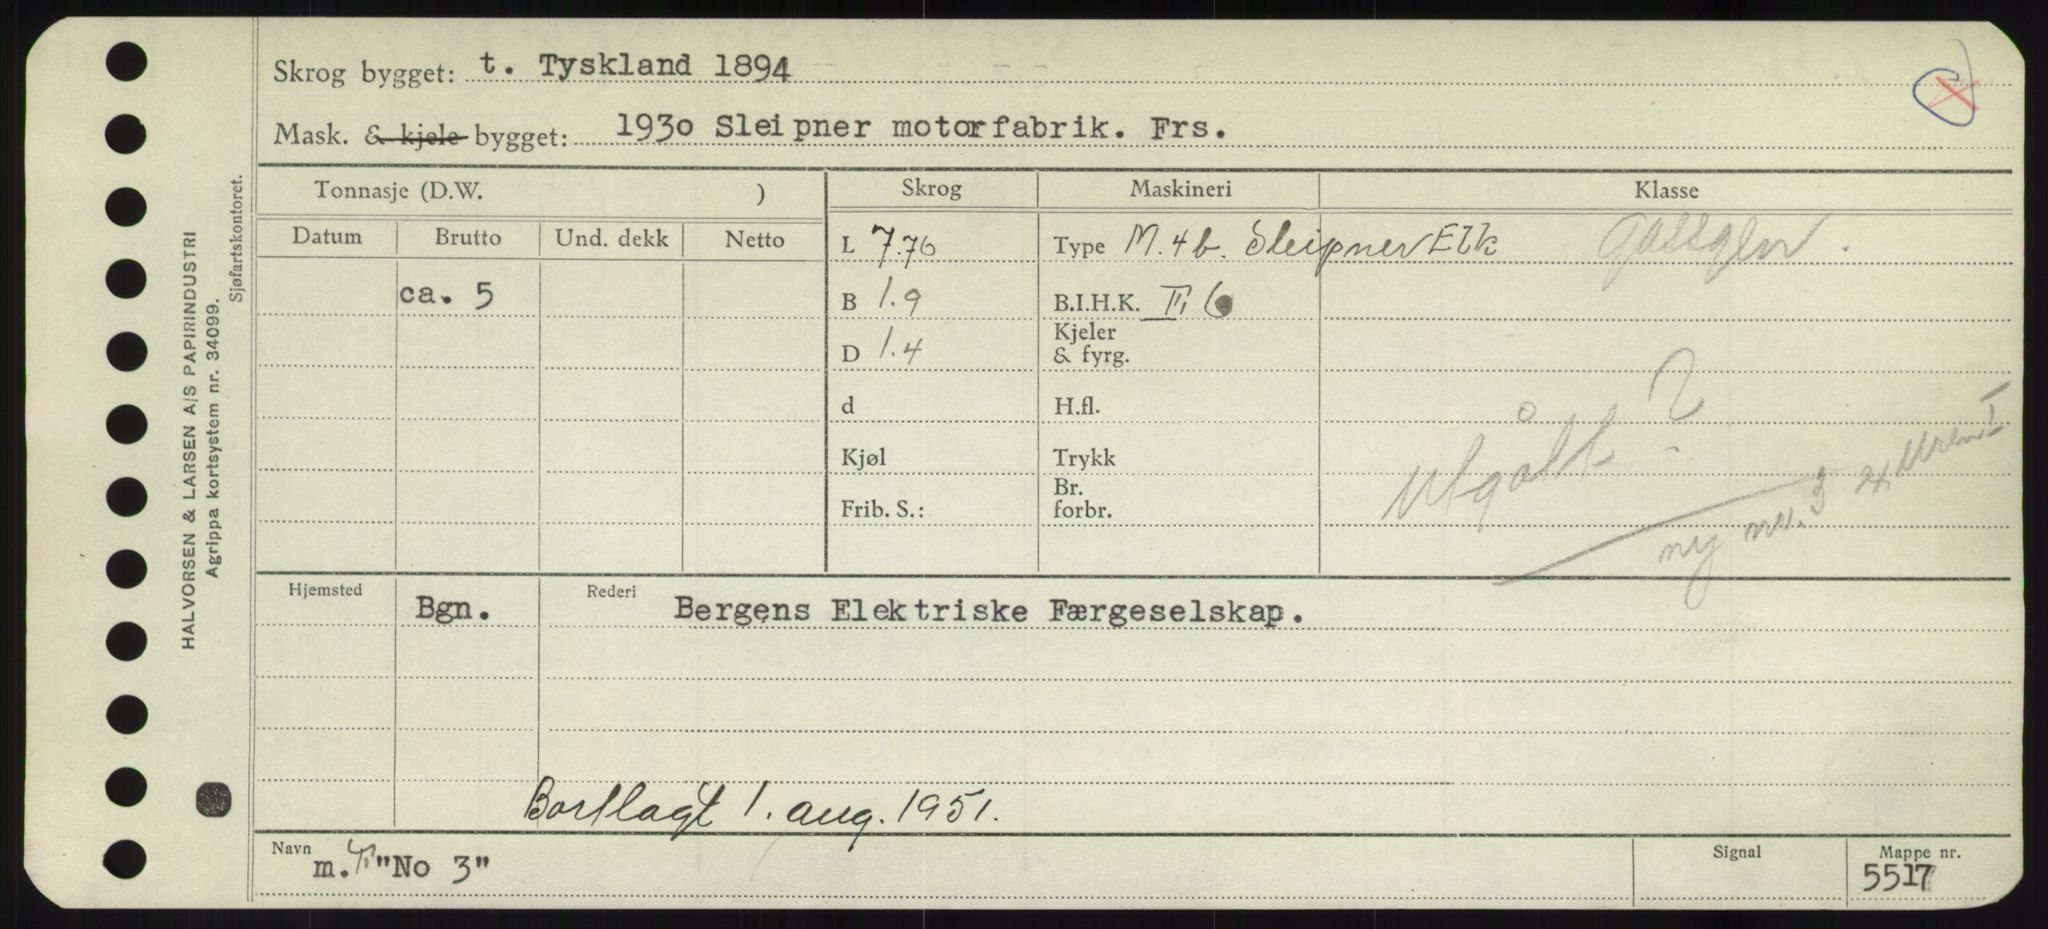 Skrog bygget: t. Tyskland 1894
Mask. & kjele bygget: 1930 Sleipner motorfabrik. Frs.
Tonnasje (D.W. )
Skrog
Maskineri
Klasse
Datum Brutto Und. dekk Netto
L 7.76
Type M. 4 b. Sleipner
ca. 5
B 1.9
B.I.H.K. 6
Kjeler
& fyrg.
D 1.4
d
H.fl.
Utgått?
Kjøl
Trykk
Frib. S.:
Br.
forbr.
ny 3
Hjemsted
Bgn.
Rederi
Bergens Elektriske Færgeselskap.
Bortlagt 1. aug. 1951.
Navn
m. "No 3"
Signal
Mappe nr.
5517
HALVORSEN & LARSEN A/S PAPIRINDUSTRI
Agrippa kortsystem nr. 34099.
Sjøfartskontoret.